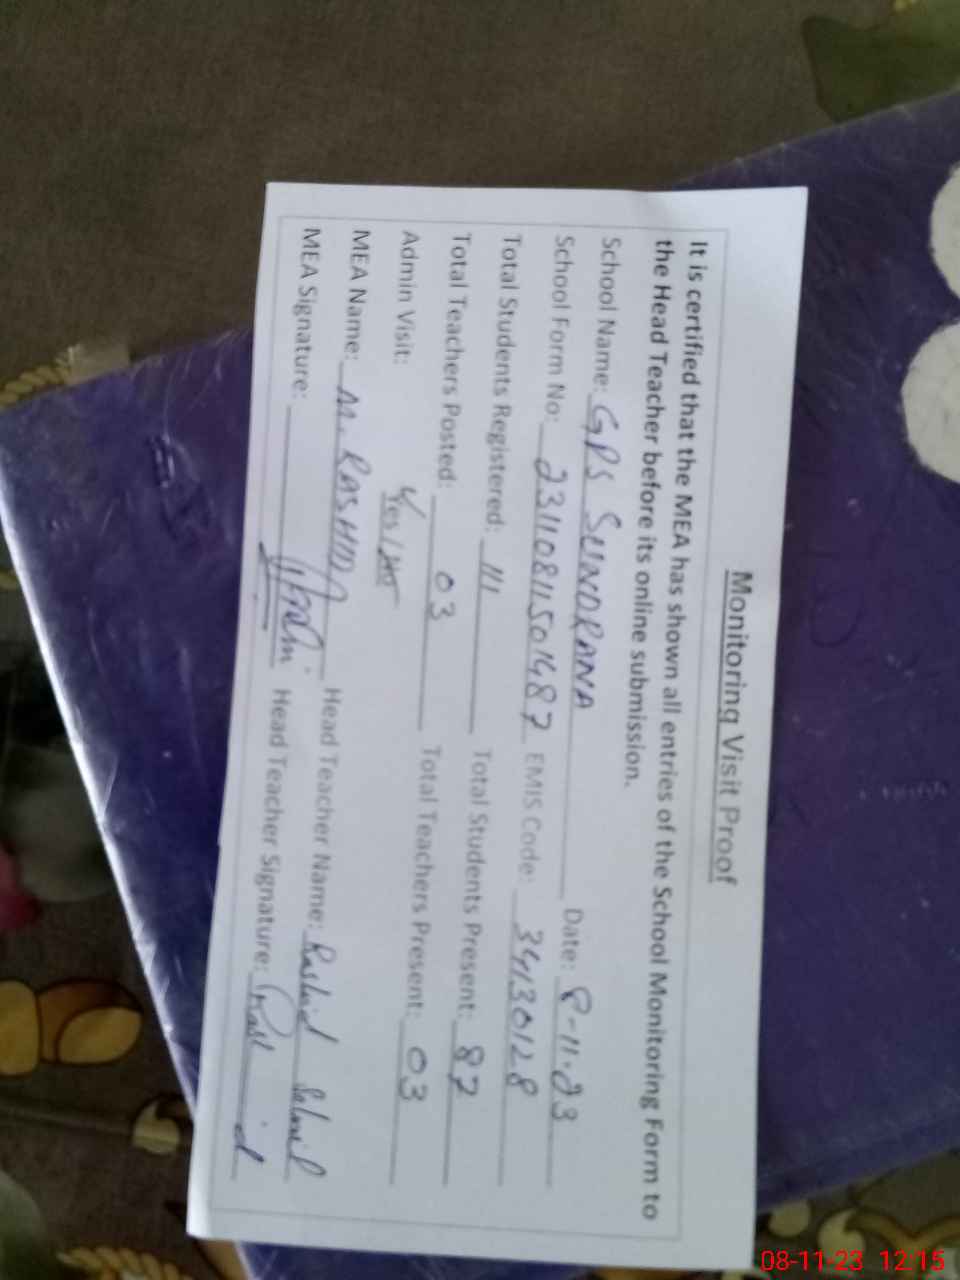 Monitoring Visit Proof
It is certified that the MEA has shown all entries of the School Monitoring Form to
the Head Teacher before its online submission.
School Name: GPS SUNDRANA Date: 8-11-23
School Form No: 23110811501487 EMIS Code: 34130128
Total Students Registered: 111 Total Students Present: 87
Total Teachers Posted: 03 Total Teachers Present: 03
Admin Visit: Yes / No
MEA Name: M. RASHID Head Teacher Name: Rashid
MEA Signature: Head Teacher Signature: Rashid
08-11-23 12:15